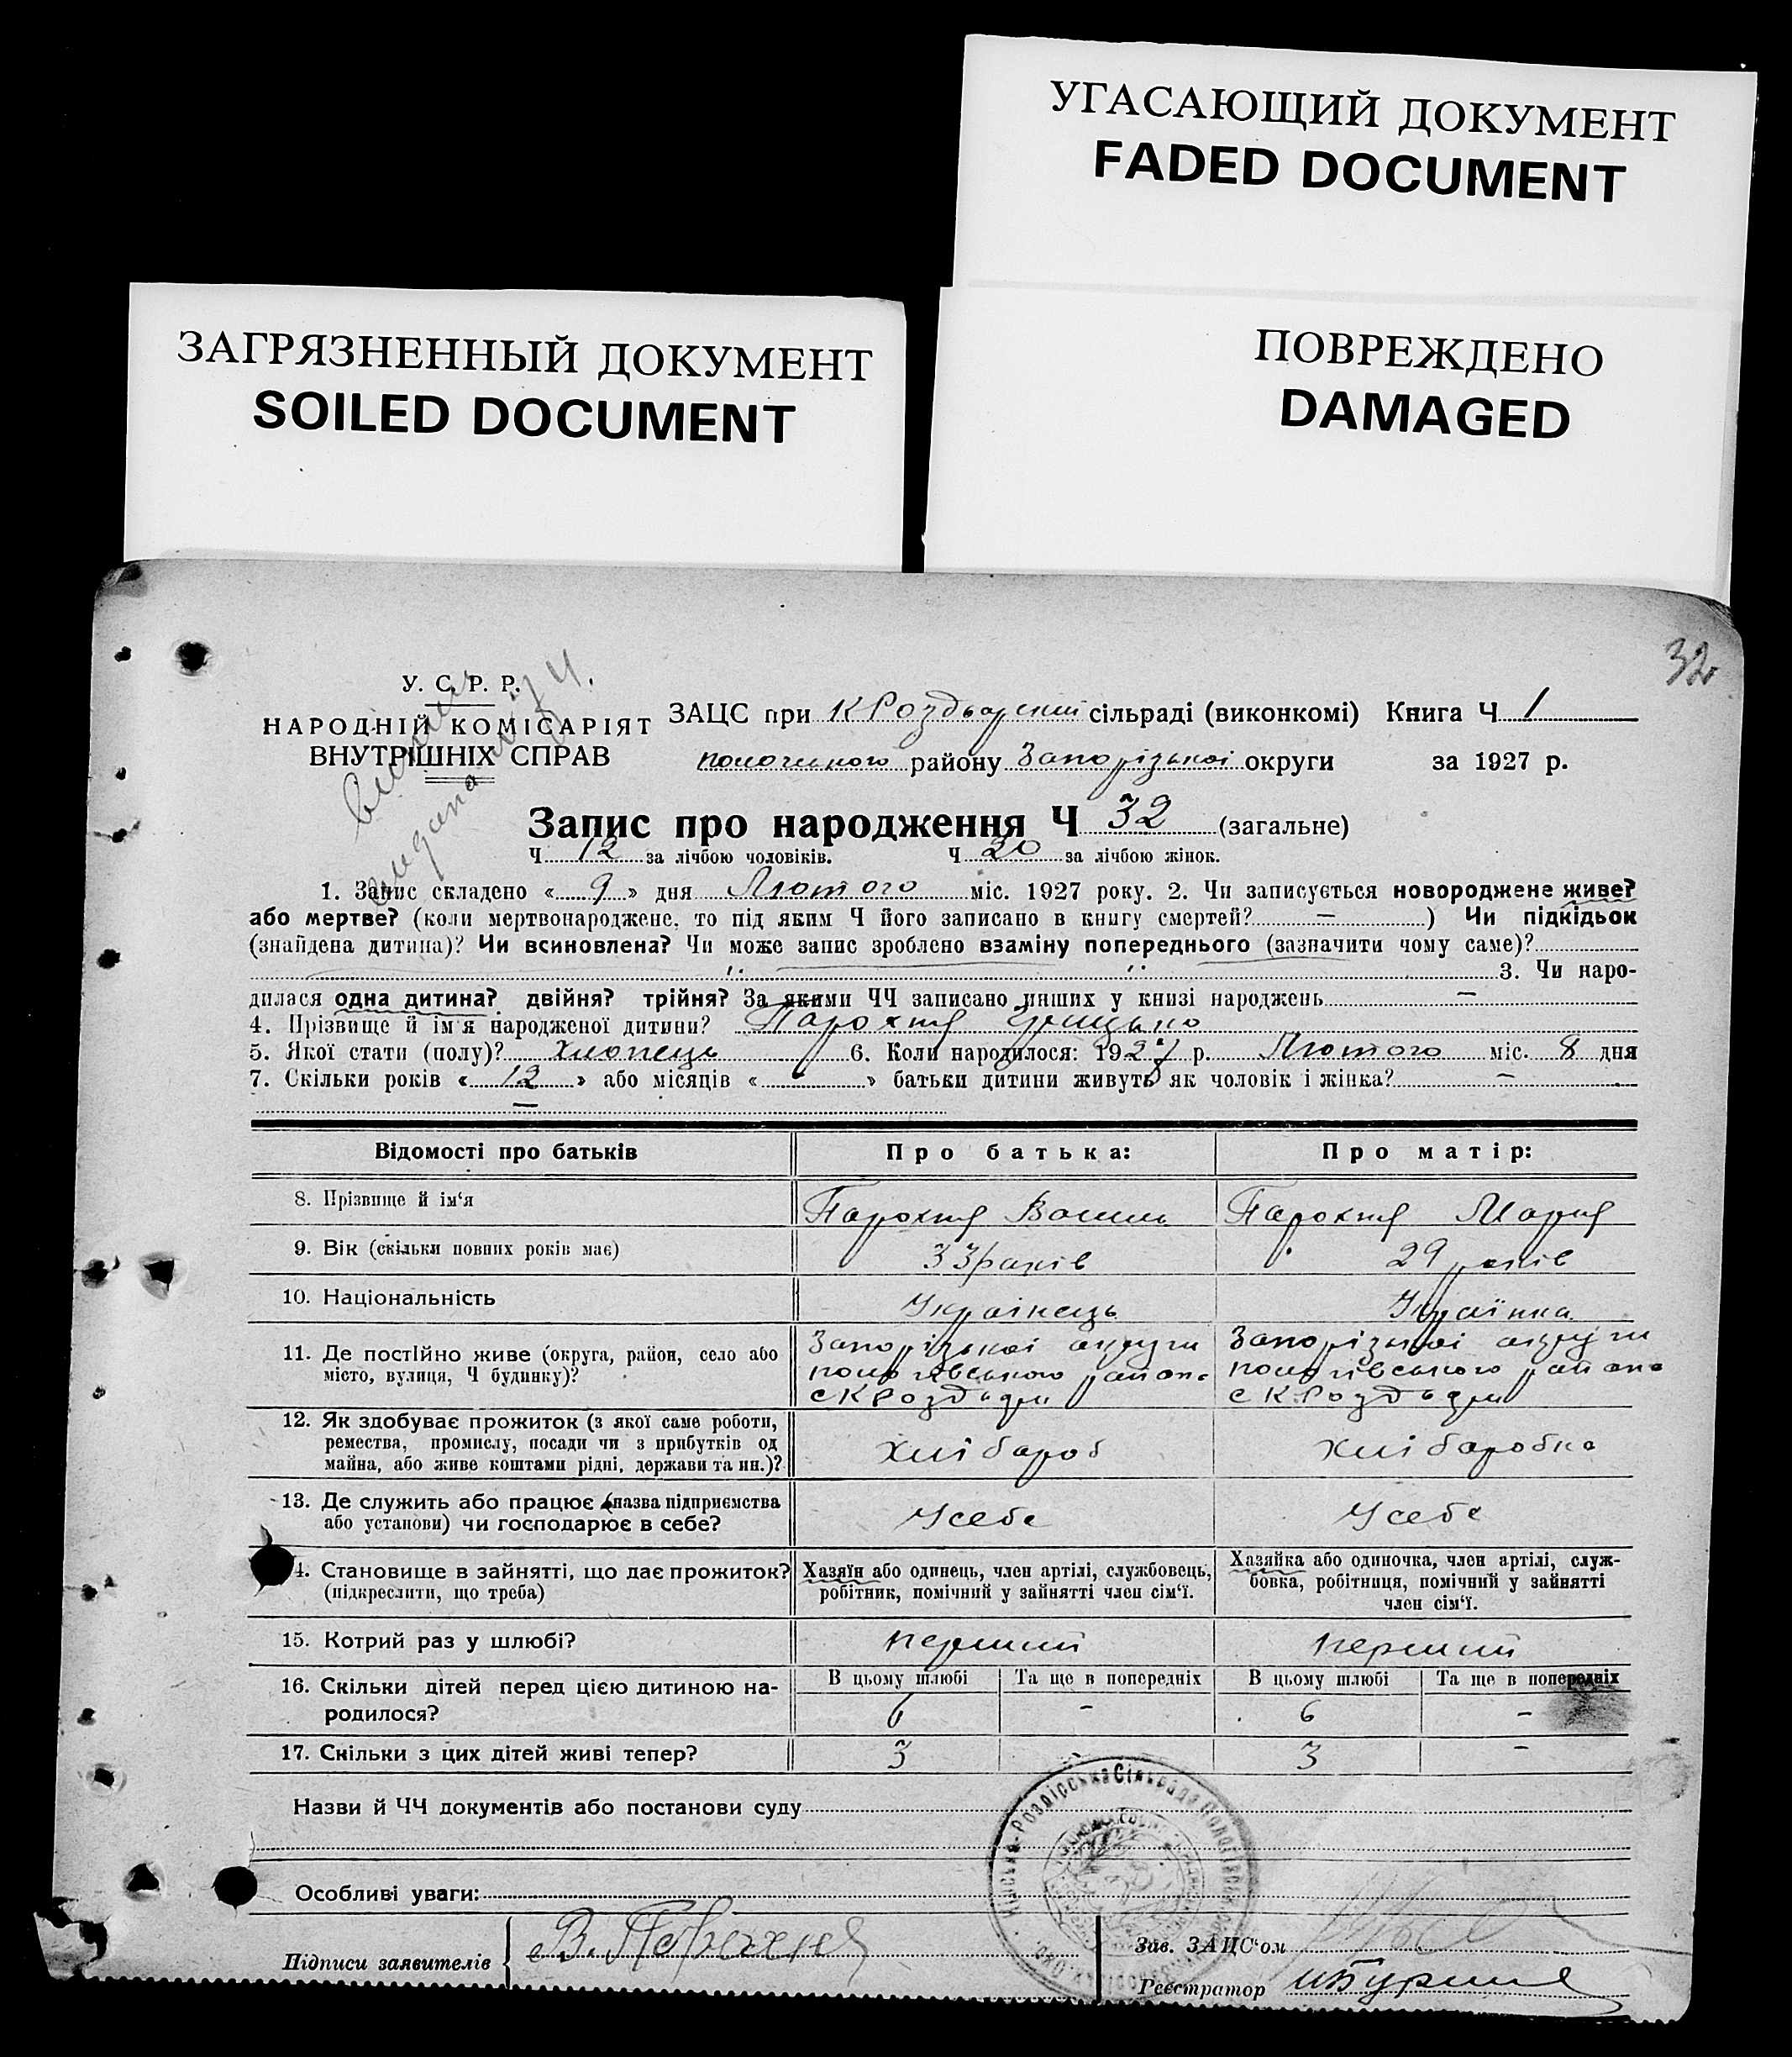 УГАСАЮЩИЙ ДОКУМЕНТ
FADED DOCUMENT
ЗАГРЯЗНЕННЫЙ ДОКУМЕНТ
SOILED DOCUMENT
ПОВРЕЖДЕНО
DAMAGED
32
У. С. Р. Р.
НАРОДНІЙ КОМІСАРІЯТ
ВНУТРІШНІХ СПРАВ
ЗАЦС при сільраді (виконкомі) Книга Ч 1
району Запорізької округи за 1927 р.
Запис про народження Ч 32 (загальне)
Ч 12 за лічбою чоловіків. Ч 20 за лічбою жінок.
1. Запис складено « 9 » дня Лютого міс. 1927 року. 2. Чи записується новороджене живе?
або мертве? (коли мертвонароджене, то під яким Ч його записано в книгу смертей? — ) Чи підкідьок
(знайдена дитина)? Чи всиновлена? Чи може запис зроблено взаміну попереднього (зазначити чому саме)?
3. Чи наро-
дилася одна дитина? двійня? трійня? За якими ЧЧ записано инших у книзі народжень —
4. Прізвище й ім'я народженої дитини? Парохня Грицько
5. Якої стати (полу)? Хлопець 6. Коли народилося: 1927 р. Лютого міс. 8 дня
7. Скільки років « 12 » або місяців « - » батьки дитини живуть як чоловік і жінка? —
—
Відомості про батьків Про батька: Про матір:
8. Прізвище й ім'я Парохня Василь Парохня Мария
9. Вік (скільки повних років має) 33 років 29 років
10. Національність Українець Українка
11. Де постійно живе (округа, район, село або місто, вулиця, Ч будинку)? Запорізької округи Запорізької округи
12. Як здобуває прожиток (з якої саме роботи,
ремества, промислу, посади чи з прибутків од
майна, або живе коштами рідні, держави та ин.)? хлібароб хлібаробка
13. Де служить або працює (назва підприємства
або установи) чи господарює в себе? У себе У себе
4. Становище в зайнятті, що дає прожиток?
(підкреслити, що треба)
Хазяїн або одинець, член артілі, службовець,
робітник, помічний у зайнятті член сім'ї.
Хазяйка або одиночка, член артілі, служ-
бовка, робітниця, помічний у зайнятті
член сім'ї.
15. Котрий раз у шлюбі? перший перший
16. Скільки дітей перед цією дитиною на-
родилося?
В цьому шлюбі Та ще в попередніх В цьому шлюбі Та ще в попередніх
6 - 6 -
17. Скільки з цих дітей живі тепер? 3 - 3 -
Назви й ЧЧ документів або постанови суду
Особливі уваги:
Підписи заявителів В. Парохня
Зав. ЗАЦС'ом
Реєстратор